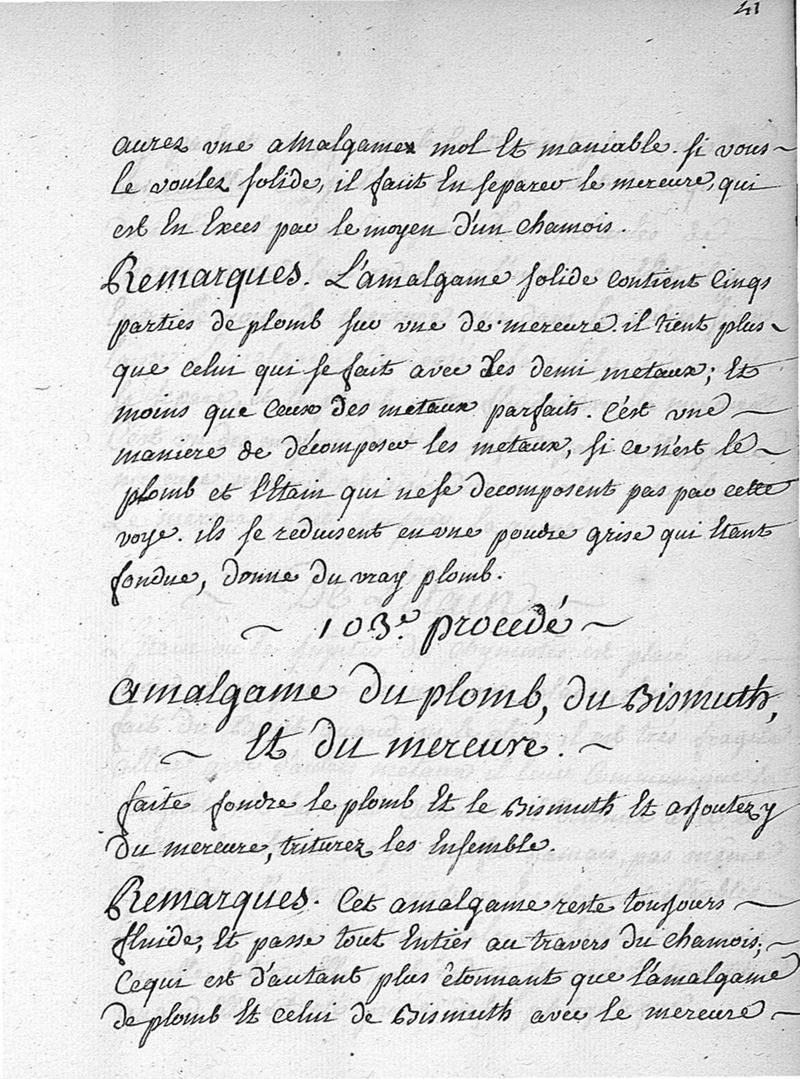 41
aurez une amalgame mol Et maniable. si vous
le voulez solide, il faut En separer le mercure, qui
est En Exces par le moyen d'un chamois.
Remarques. L'amalgame solide contient Cinqs
parties de plomb sur une de mercure. il tient plus
que celui qui se fait avec des demi metaux; Et
moins que Ceux des metaux parfaits. C'est une
maniere de décomposer les metaux, si ce n'est le
plomb et l'Etain qui ne se decomposent pas par cette
voye. ils se reduisent en une poudre grise qui Etant
fondue, donne du vray plomb.
~ 103.e procedé ~
Amalgame du plomb, du Bismuth,
~ Et du mercure. ~
faite fondre le plomb Et le Bismuth Et ajoutez y
du mercure, triturez les Ensemble.
Remarques. Cet amalgame reste toujours
fluide, Et passe tout Entiés au travers du chamois;
Cequi est d'autant plus étonnant que l'amalgame
de plomb Et celui de Bismuth avec le mercure